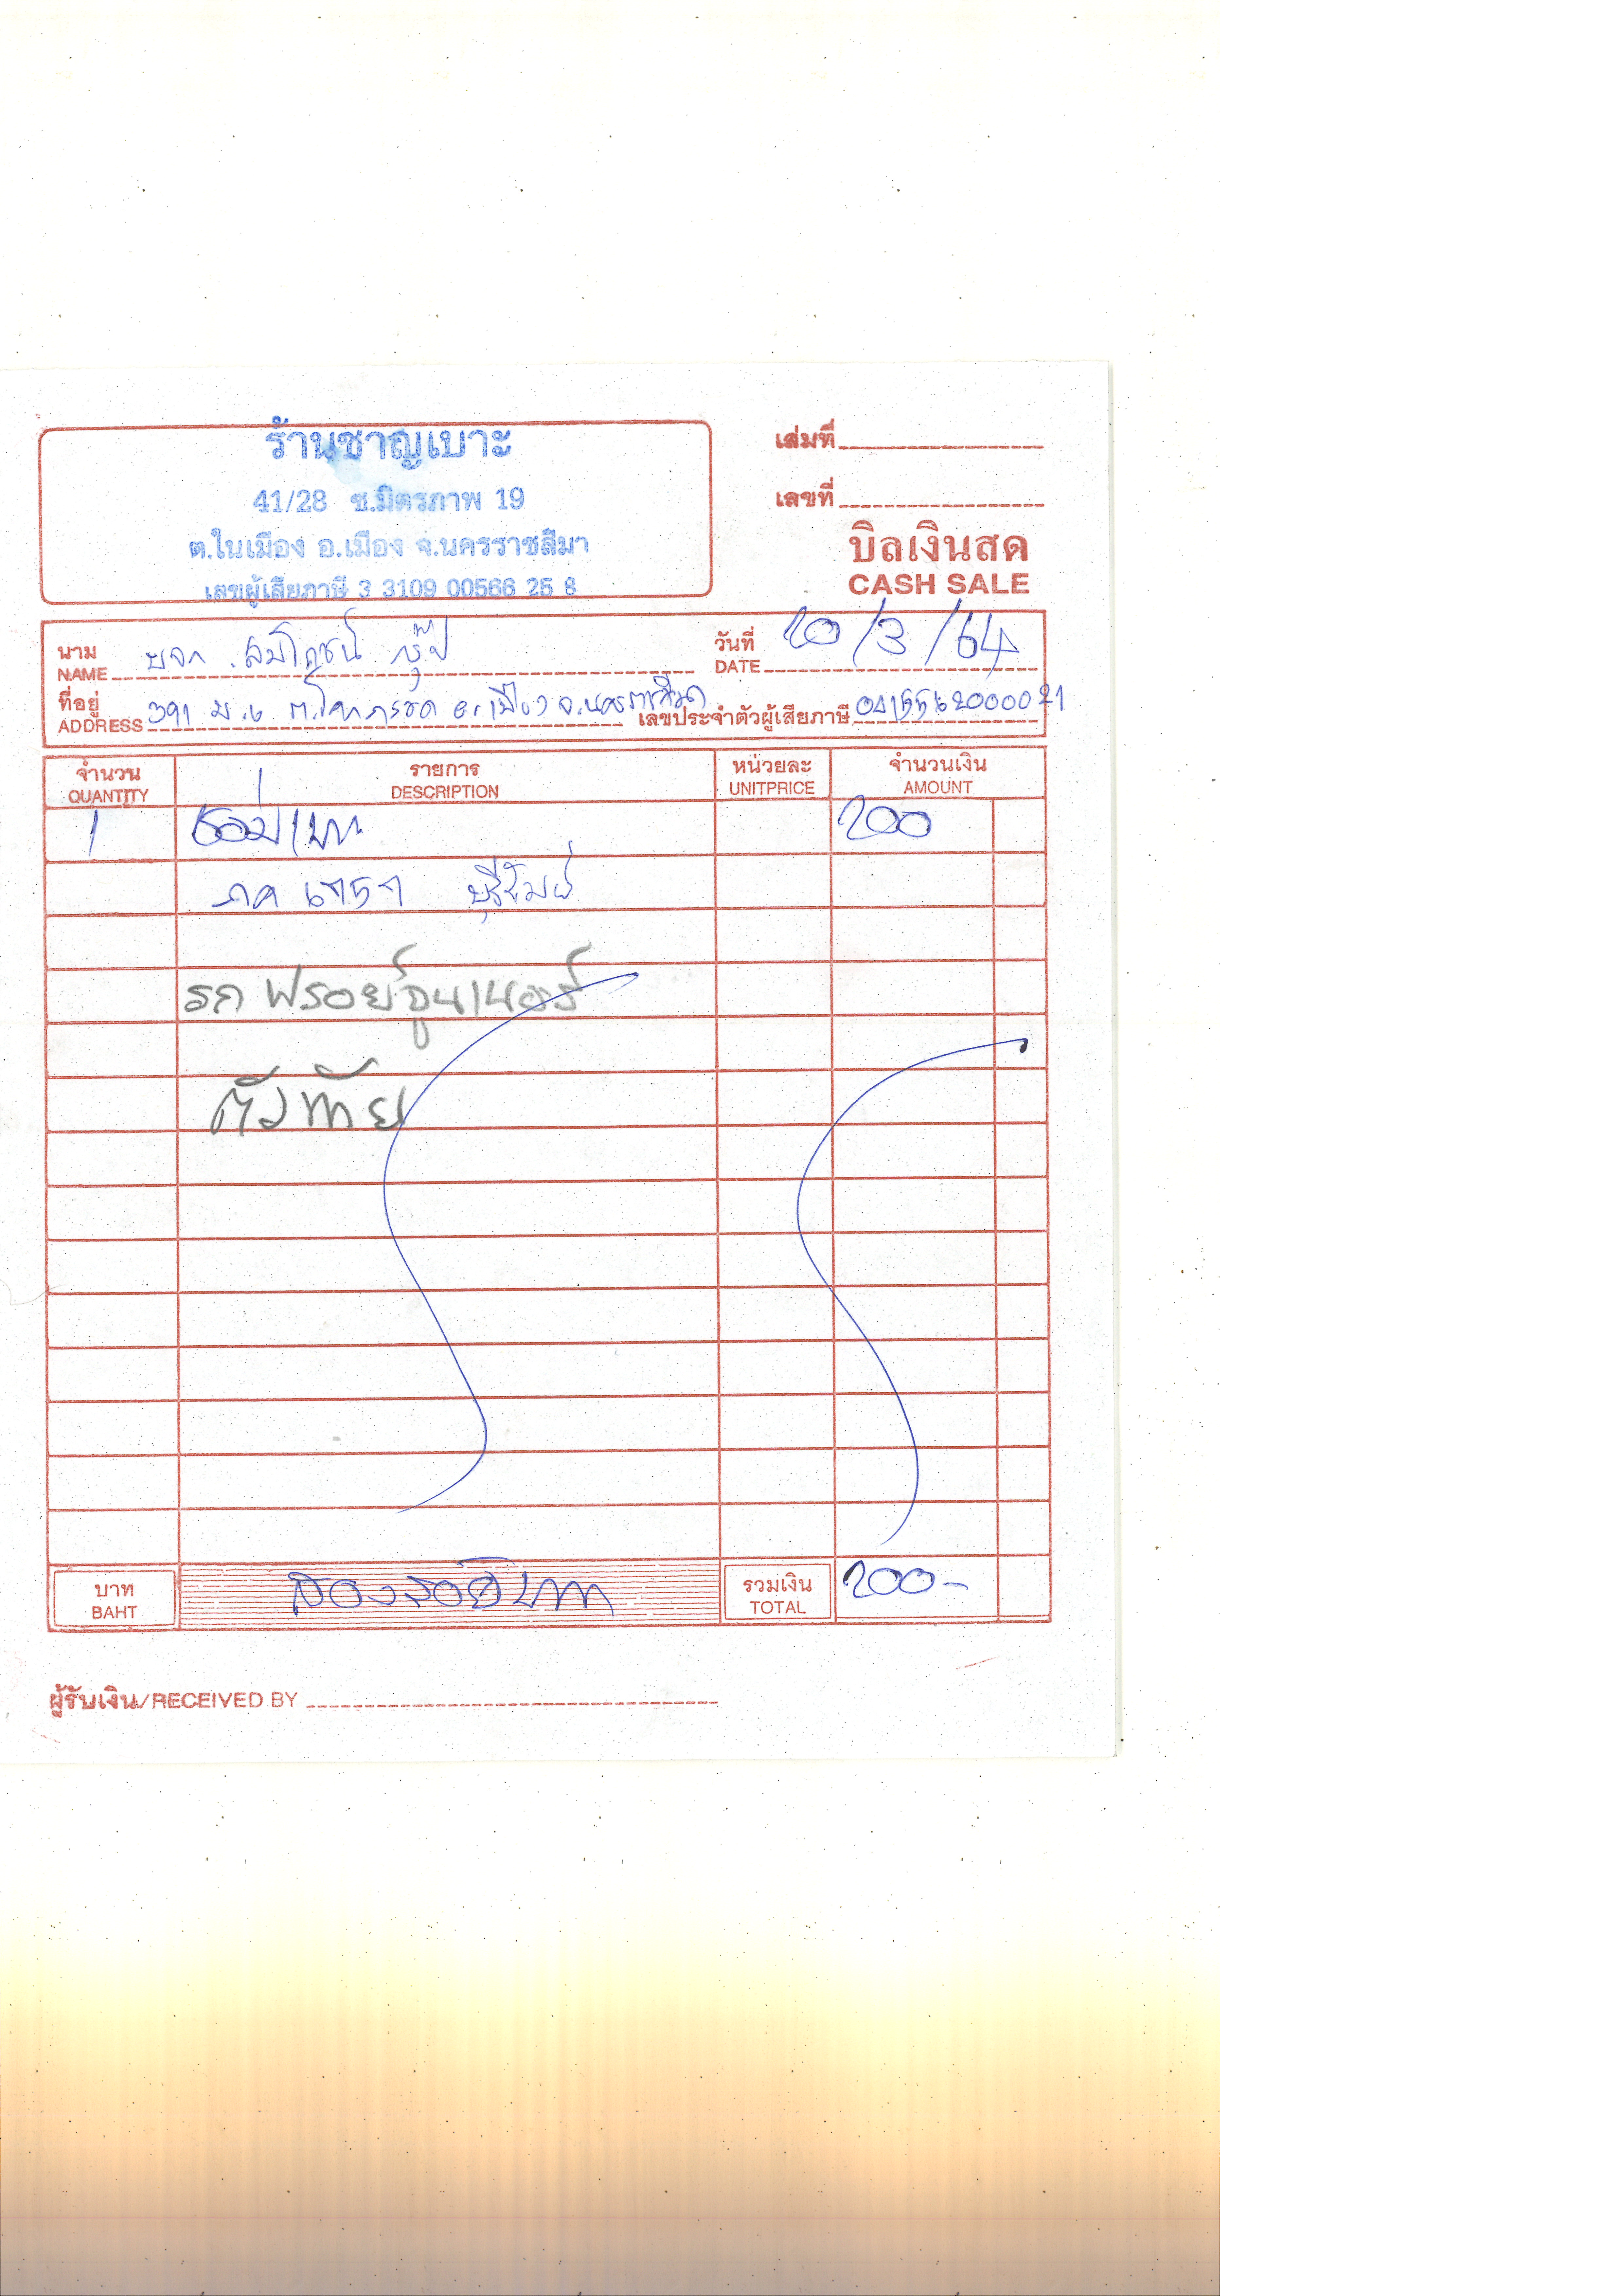 ร้านชาญเบาะ
41/28 ซ.มิตรภาพ 19
ต.ในเมือง อ.เมือง จ.นครราชสีมา
เลขผู้เสียภาษี 3 3109 00566 25 8
เล่มที่
เลขที่
บิลเงินสด
CASH SALE
นาม
NAME
วันที่ 20/3/64
DATE
ที่อยู่ 391 ม.6
ADDRESS
เลขประจำตัวผู้เสียภาษี
จำนวน รายการ หน่วยละ จำนวนเงิน
QUANTITY DESCRIPTION UNITPRICE AMOUNT
1 ซ่อมเบาะ 200
บุรีรัมย์
รถ ฟรอยจูนเนอร์
ตัวท้าย
บาท สองร้อยบาท รวมเงิน 200-
BAHT TOTAL
ผู้รับเงิน/RECEIVED BY